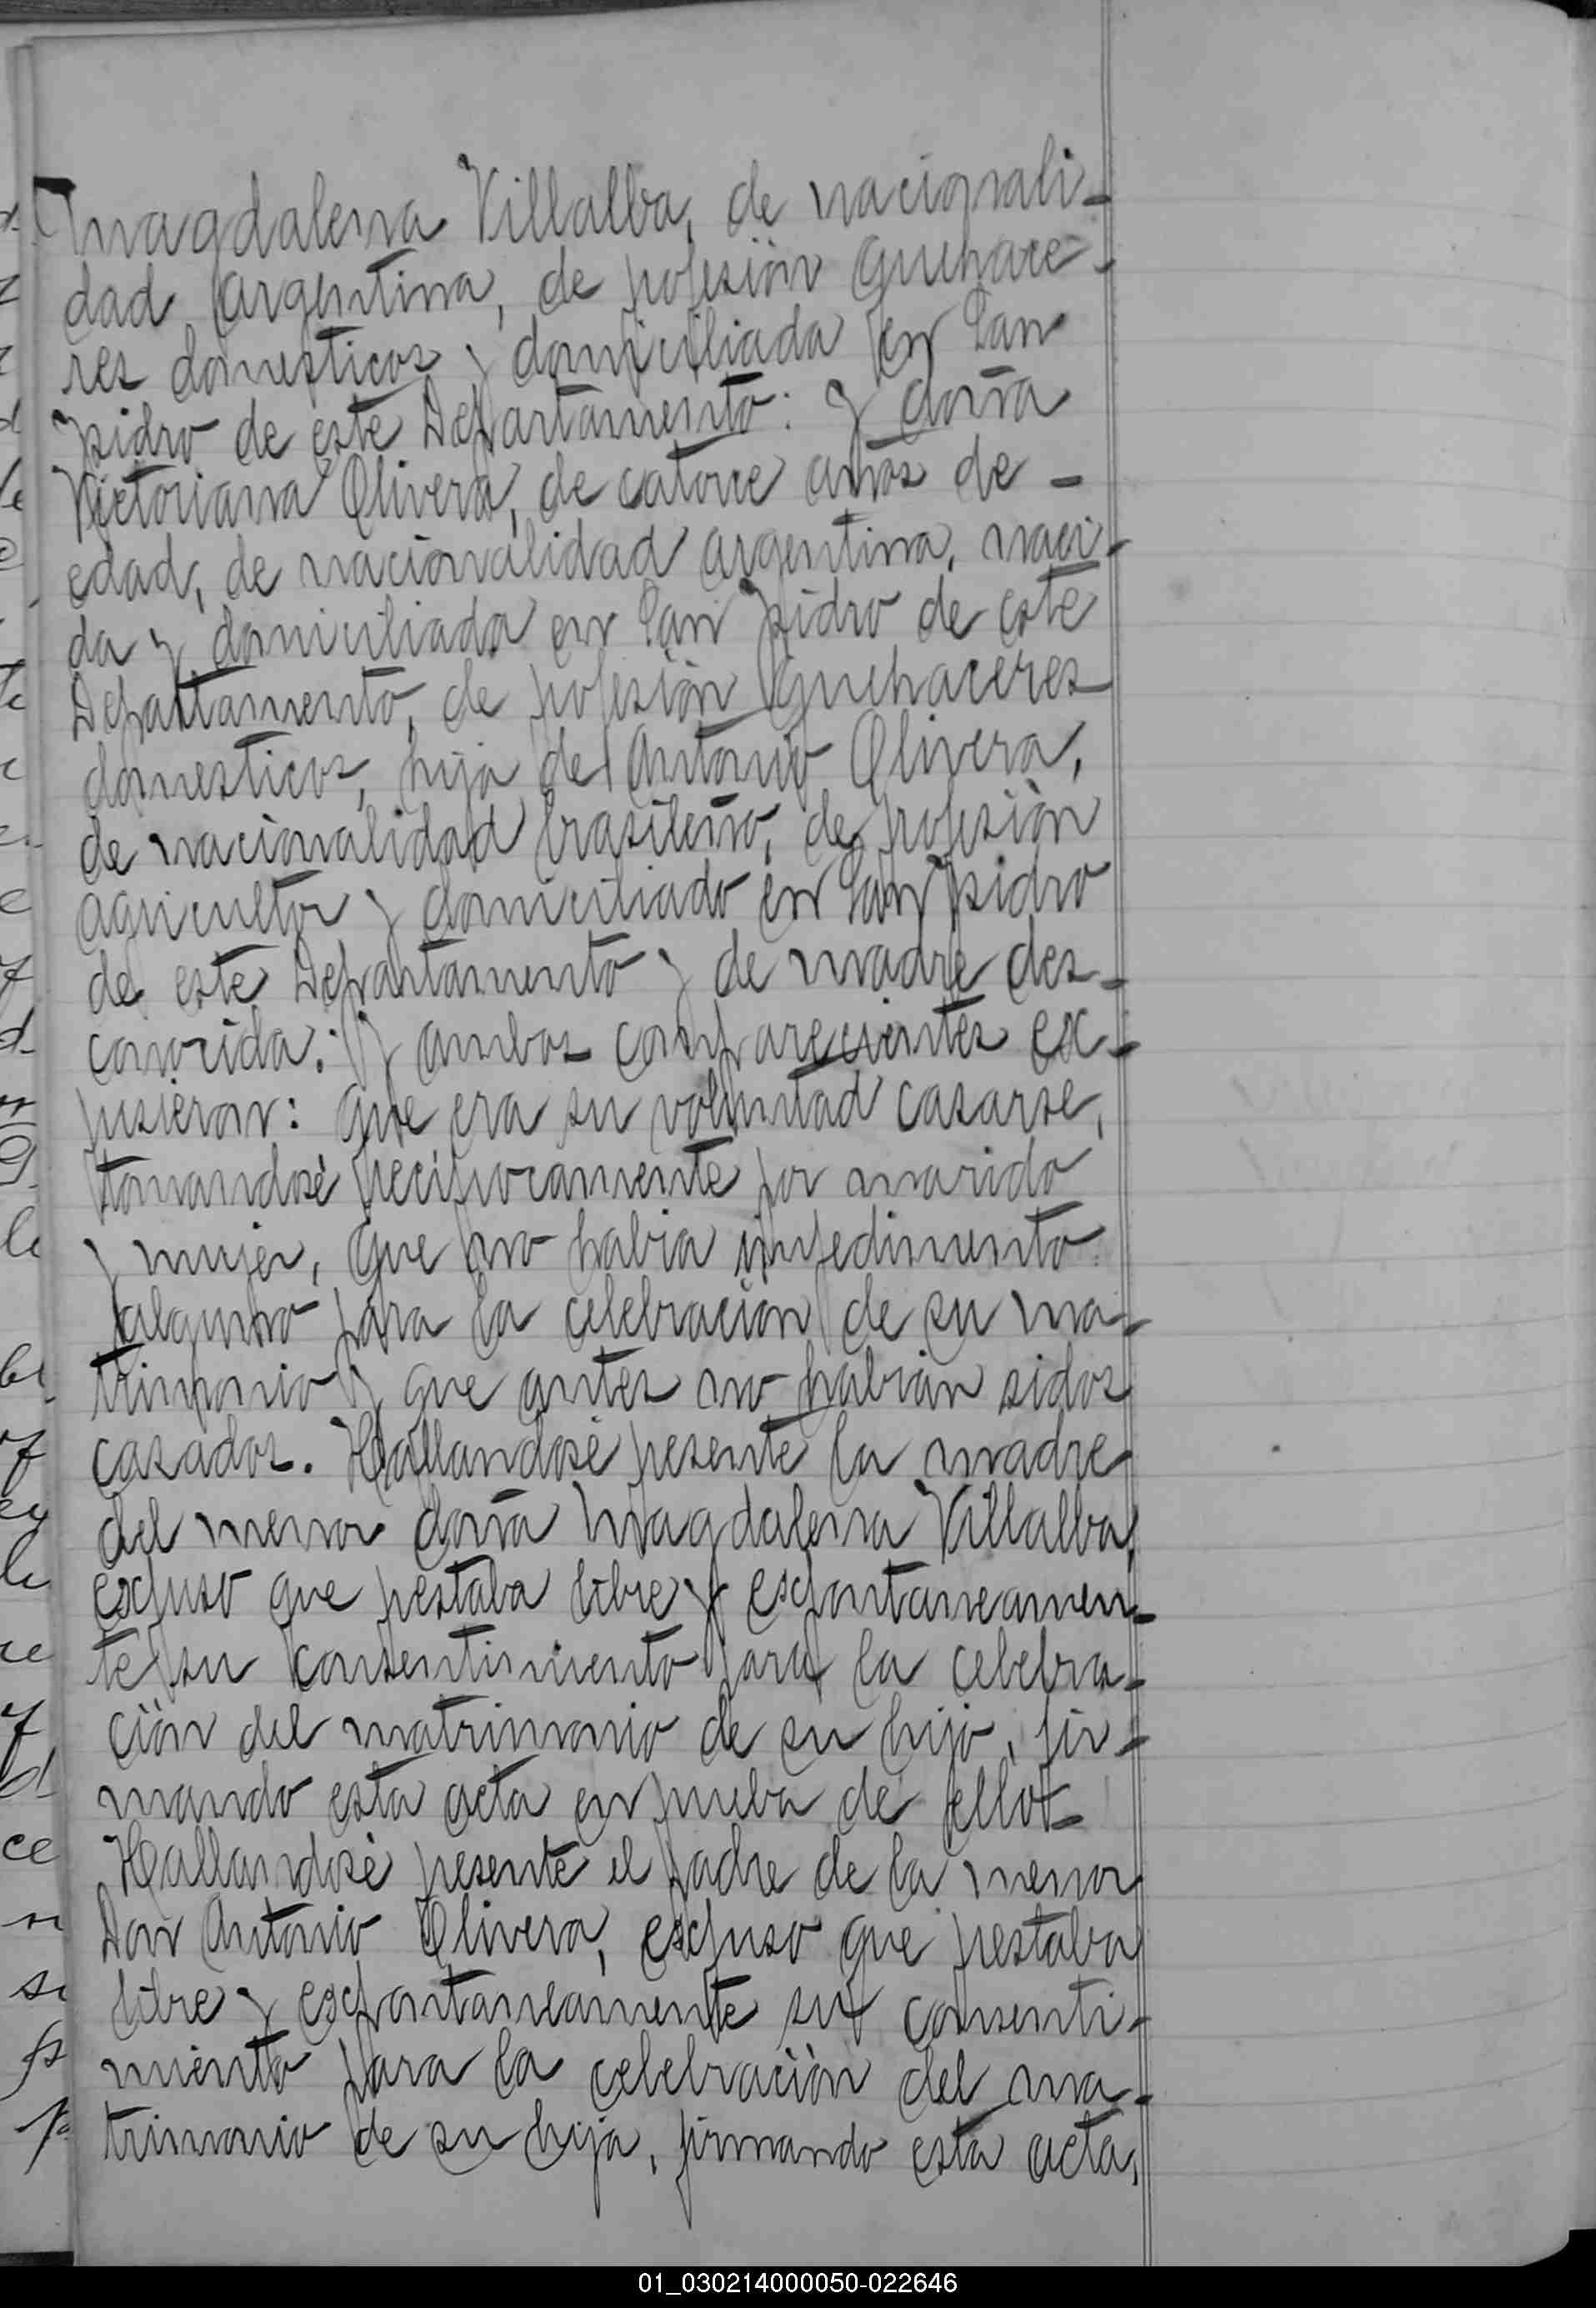 Magdalena Villalba, de nacionali-
dad argentina, de profesiòn quehace-
res domesticos y domiciliada en San
Ysidro de este Departamento: y doña
Victoriana Olivera, de catorce años de -
edad, de nacionalidad argentina, naci-
da y domiciliada en San Ysidro de este
Departamento, de profesiòn quehaceres
domesticos, hija de Antonio Olivera,
de nacionalidad brasileño, de profesiòn
agricultor y domiciliado en San Ysidro
de este Departamento y de madre des-
conocida: Y ambos comparecientes ex-
pusieron: Que era su voluntad casarse,
tomandosè reciprocamente por marido
y mujer, que no habia impedimento
alguno para la celebraciòn de su ma-
trimonio y que antes no habian sidos
casados. Hallandosè presente la madre
del menor doña Magdalena Villalba,
expuso que prestaba libre y expontaneamen-
te su consentimiento para la celebra-
ciòn del matrimonio de su hijo, fir-
mando esta acta en prueba de ello-
Hallandosè presente el padre de la menor
Don Antonio Olivera, expuso que prestaba
libre y expontaneamente su consenti-
miento para la celebraciòn del ma-
trimonio de su hija, firmando esta acta,
01_030214000050-022646